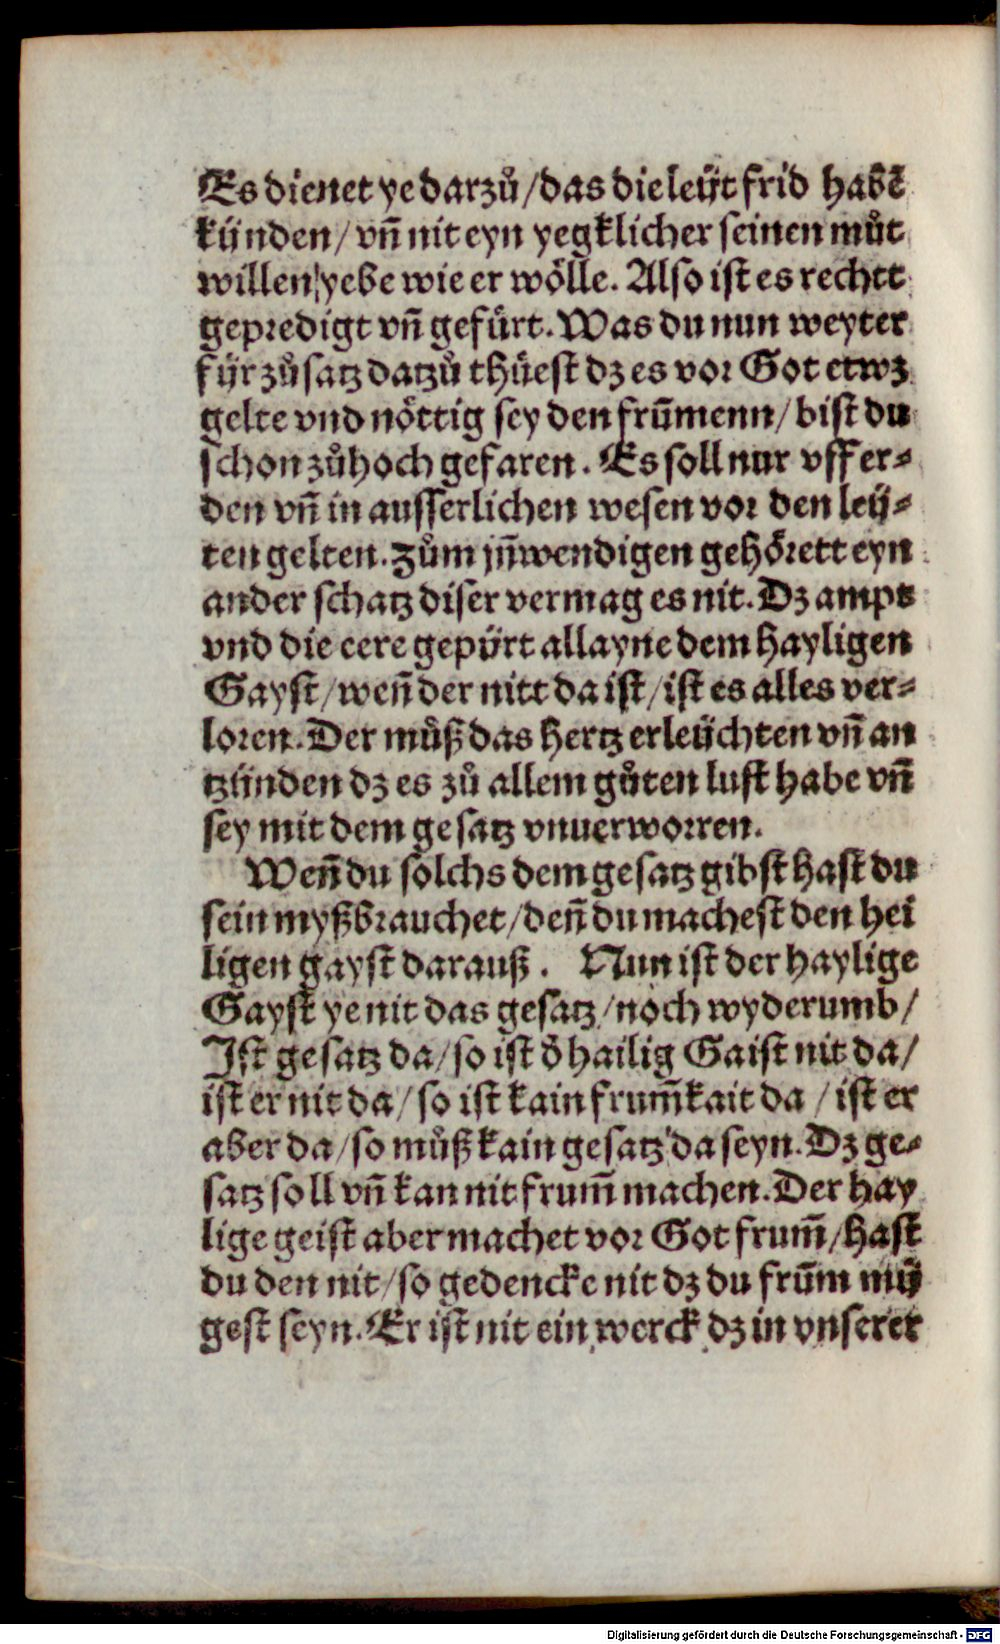 Es dienet ye darzů / das die leüt frid habē
künden / vñ nit eyn yegklicher seinen můt
willen yebe wie er wölle. Also ist es rechtt
gepredigt vñ gefürt. Was du nun weyter
für zůsatz datzů thüest dz es vor Got etwz
gelte vnd nöttig sey den frūmenn / bist du
schon zůhoch gefaren. Es soll nur vff er⸗
den vñ in ausserlichen wesen vor den leü⸗
ten gelten. Zům jñwendigen gehörett eyn
ander schatz diser vermag es nit. Dz ampt
vnd die eere gepürt allayne dem hayligen
Gayst / weñ der nitt da ist / ist es alles ver⸗
loren. Der můß das hertz erleüchten vñ an
tzünden dz es zů allem gůten lust habe vñ
sey mit dem gesatz vnuerworren.
Weñ du solchs dem gesatz gibst hast du
sein myßbrauchet / deñ du machest den hei
ligen gayst darauß. Nun ist der haylige
Gayst ye nit das gesatz / noch wyderumb /
Ist gesatz da / so ist ð hailig Gaist nit da /
ist er nit da / so ist kain frum̄kait da / ist er
aber da / so můß kain gesatz da seyn. Dz ge⸗
satz soll vñ kan nit frum̄ machen. Der hay
lige geist aber machet vor Got frum̄ / hast
du den nit / so gedencke nit dz du frūm mü
gest seyn. Er ist nit ein werck dz in vnserer
Digitalisierung gefördert durch die Deutsche Forschungsgemeinschaft - DFG